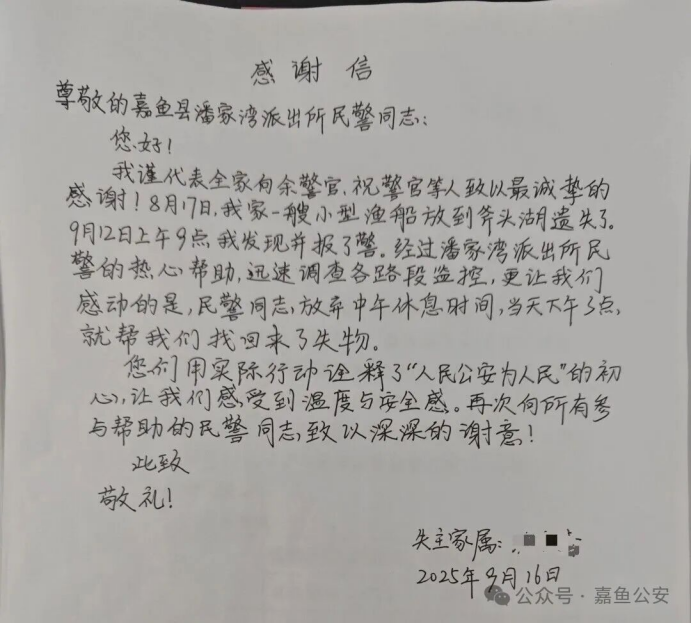 感谢信
尊敬的嘉鱼县潘家湾派出所民警同志：
您好！
我谨代表全家向余警官、祝警官等人致以最诚挚的
感谢！8月17日，我家一艘小型渔船放到斧头湖遗失了。
9月12日上午9点，我发现并报了警。经过潘家湾派出所民
警的热心帮助，迅速调查各路段监控，更让我们
感动的是，民警同志，放弃中午休息时间，当天下午3点，
就帮我们找回来了失物。
您们用实际行动诠释了“人民公安为人民”的初
心，让我们感受到温度与安全感。再次向所有参
与帮助的民警同志致以深深的谢意！
此致
敬礼！
失主家属：
2025年9月16日
公众号·嘉鱼公安